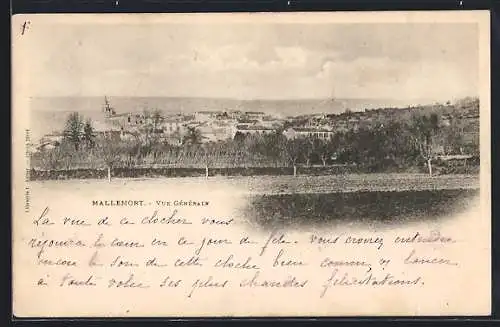 MALLEMORT. - VUE GÉNÉRALE
La vue de ce clocher vous
réjouira le cœur en ce jour de fête. Vous croirez entendre
encore le son de cette cloche bien connue, vs lancer
à toute volée ses plus grandes félicitations.